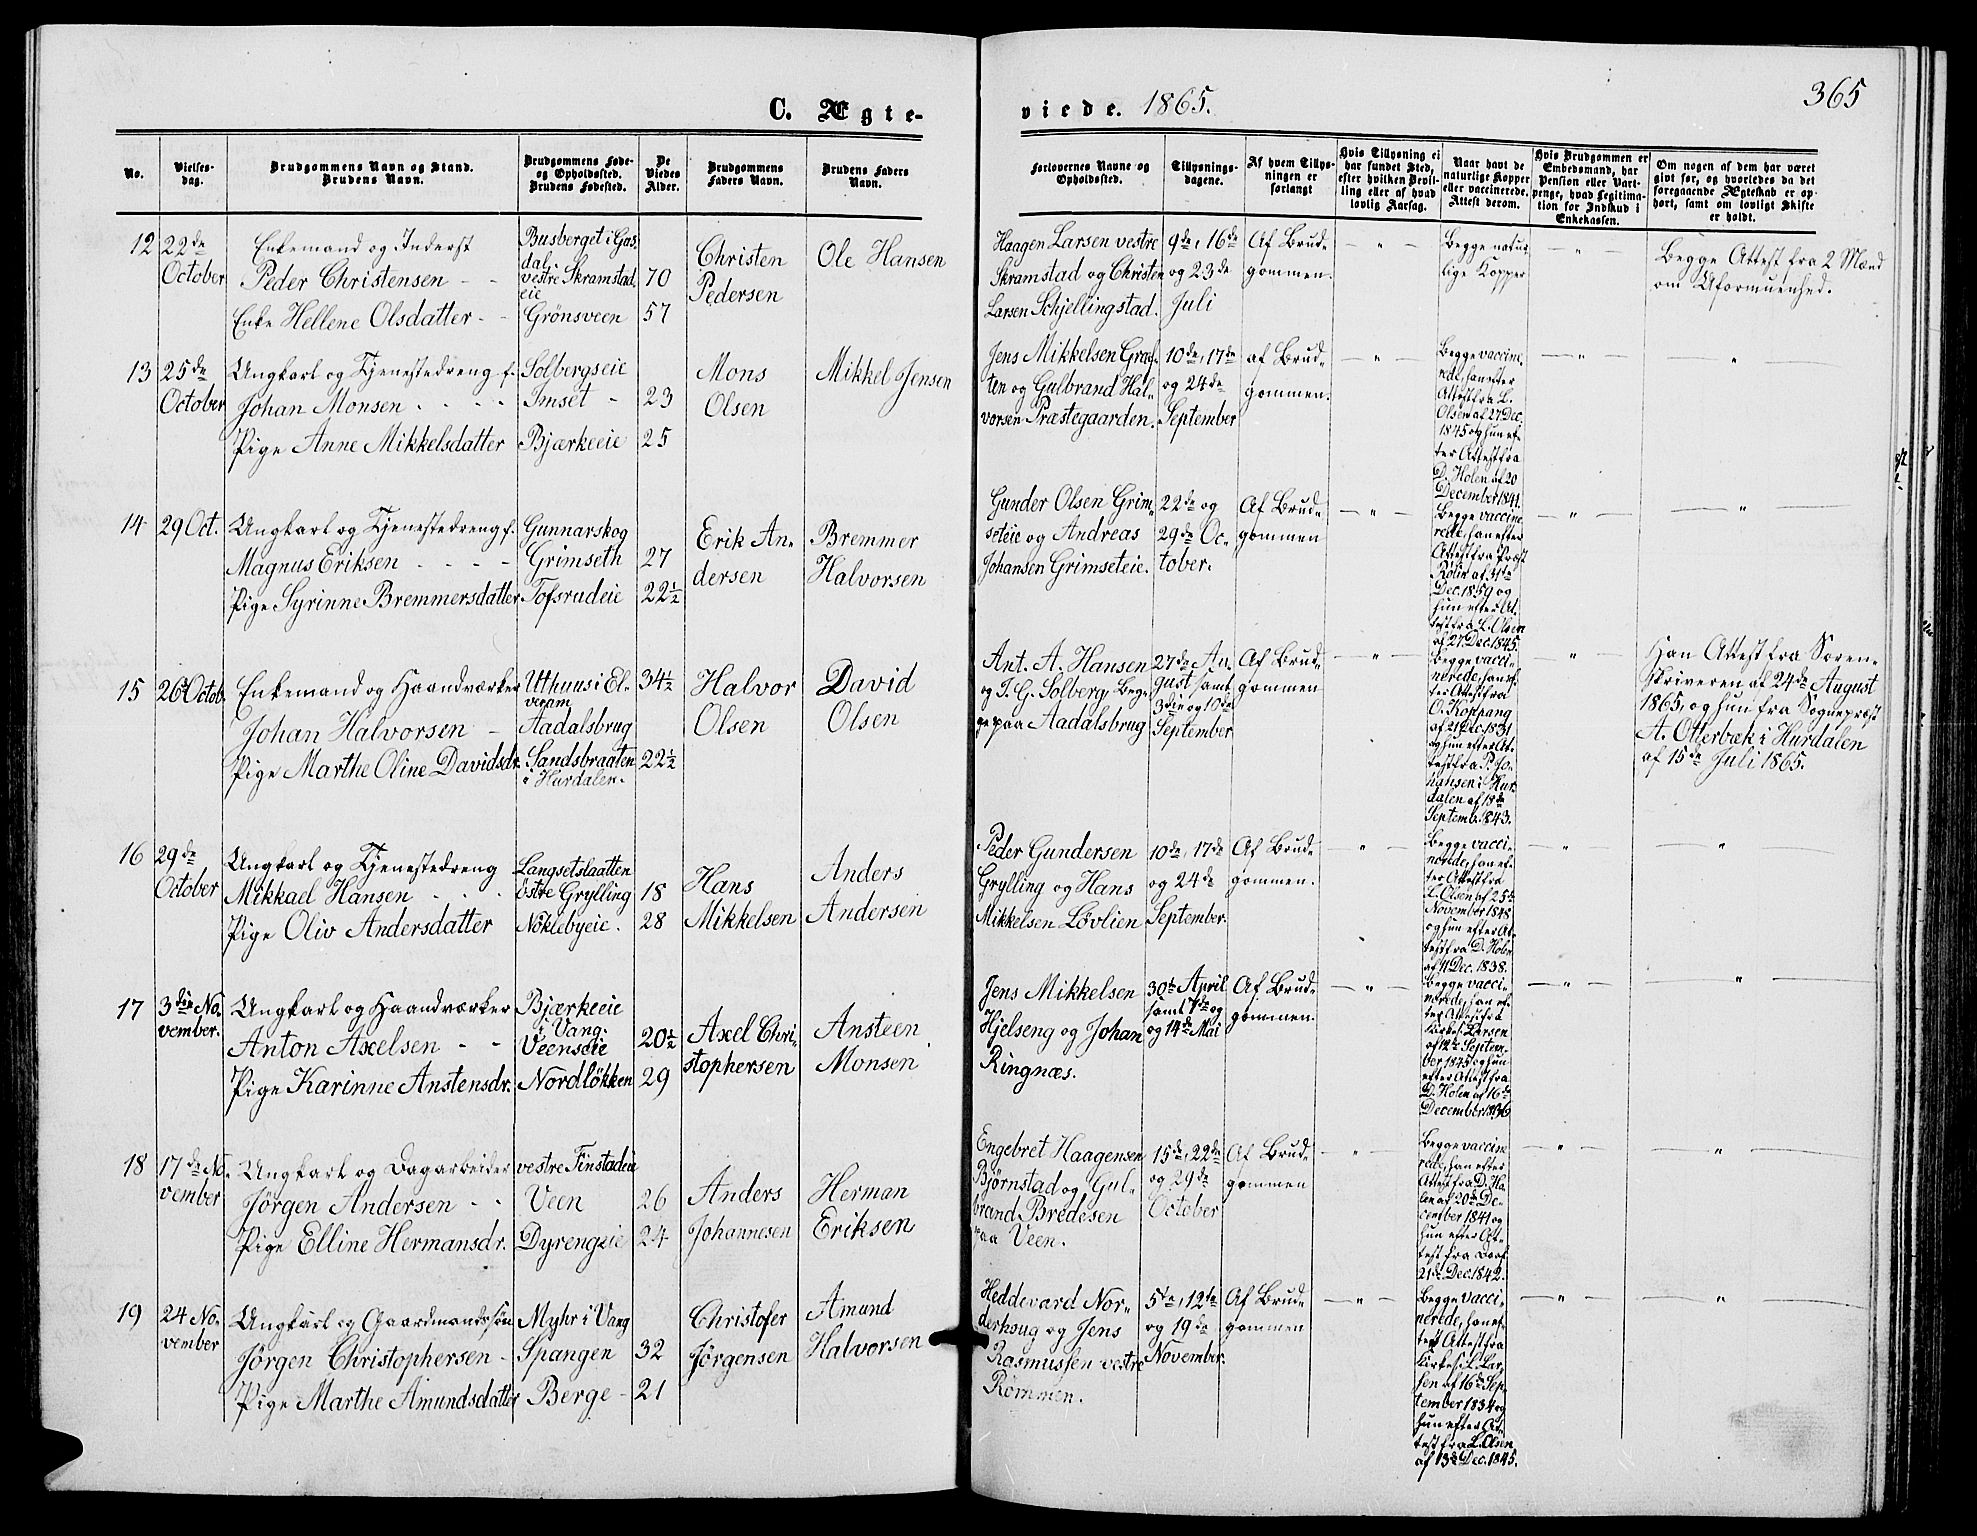 C. Ægte-
viede. 1865.
365
No.
Vielses-
dag.
Brudgommens Navn og Stand.
Brudens Navn.
Brudgommens Føde-
og Opholdssted.
Brudens Fødested.
De
Viedes
Alder.
Brudgommens
Faders Navn.
Brudens Faders
Navn.
Forlovernes Navne og
Opholdssted.
Tillysnings-
dagene.
Af hvem Tillys-
ningen er
forlangt
Hvis Tillysning ei
har fundet Sted,
efter hvilken Bevil-
ling eller af hvad
lovlig Aarsag.
Naar havt de
naturlige Kopper
eller vaccinerede.
Attest derom.
Hvis Brudgommen er
Embedsmand, har
Pension eller Vart-
penge, hvad Legitima-
tion for Indskud i
Enkekassen.
Om nogen af dem har været
givt før, og hvorledes da det
foregaaende Ægteskab er op-
hørt, samt om lovligt Skifte
er holdt.
12
22de
October
Enkemand og Inderst
Peder Christensen - -
Enke Hellene Olsdatter - -
Busberget i Gas.
dal
vestre Skramstad
eie
Grönsveen
70
57
Christen
Pedersen
Ole Hansen
Haagen Larsen vestre
Skramstad og Christen
Larsen Schjellingstad.
9de, 16de
og 23de
Juli
Af Brud-
gommen.
— " —
Begge natur
lige Kopper
— " —
Begge Attest fra 2 Mænd
om Uformuenhed.
13
25de
October
Ungkarl og Tjenestedreng f.
Johan Monsen - - - -
Pige Anne Mikkelsdatter
Solbergseie
Imset -
Bjærkeeie
23
25
Mons
Olsen
Mikkel Jensen
Jens Mikkelsen Graf-
ten og Gulbrand Hal-
vorsen Præstegaarden.
10de, 17de
og 24de
September
af Brud-
gommen.
— " —
Begge vaccine-
rede, han efter
Attest fra L.
Olsen af 27 Dec.
1845 og hun ef-
ter Attest fra
D. Holen af 20
December 1841.
— " —
"
14
29 Oct.
Ungkarl og Tjenestedreng f.
Magnus Eriksen - - - -
Pige Syrinne Bremmersdatter
Gunnarskog
Grimseth
Tofsrudeie
27
22½
Erik An-
dersen
Bremmer
Halvorsen
Gunder Olsen Grim-
seteie og Andreas
Johansen Grimseteie.
22de og
29de Oc-
tober.
Af Brud-
gommen
— " —
Begge vaccine-
rede, han efter
Attest fra Præst
Rölin af
Dec. 1859 og
hun efter At-
test fra L. Olsen
af 27 Dec. 1845.
— " —
— " —
15
26 Octob.
Enkemand og Haandværker
Johan Halvorsen -
Pige Marthe Oline Davidsdr.
Uthuus i El-
verum
Aadalsbrug
Sandsbraaten
i Hurdalen.
34½
22½
Halvor
Olsen
David
Olsen
Ant. A. Hansen
og T. G. Solberg Beg-
ge paa Aadalsbrug
27de Au-
gust samt
3die og 10de
September
Af Brud-
gommen
— " —
Begge vacci-
nerede, han ef-
ter Attest fra
O. Koppang
af 21 Dec. 1831
og hun efter At-
test fra P. Jo-
hansen i Hur-
dalen af 18de
Septemb. 1843.
— " —
Han Attest fra Soren-
skriveren af 24de August
1865, og hun fra Sognepræst
A. Otterbæk i Hurdalen
af 15de Juli 1865.
16
29de
October
Ungkarl og Tjenestedreng
Mikkael Hansen - - -
Pige Oliv Andersdatter
Langsetslaatten
Østre Grylling
Nöklebyeie.
18
28
Hans
Mikkelsen
Anders
Andersen
Peder Gundersen
Grylling og Hans
Mikkelsen Løvlien
10de, 17de
og 24de
September.
Af Brud-
gommen.
— " —
Begge vacci-
nerede, han ef-
ter Attest fra
L. Olsen af 25de
November 1848
og hun efter At-
test fra D. Holen
af 11 Dec. 1838.
— " —
"
17
3die No-
vember.
Ungkarl og Haandværker
Anton Axelsen - -
Pige Karinne Anstensdr.
Bjærkeeie
i Vang.
Veenseie
Nordløkken
20½
29
Axel Chri-
stophersen
Ansteen
Monsen
Jens Mikkelsen
Hjelseng og Johan
Ringnæs.
30te April
samt 7de og
og 14de Mai
Af Brud-
gommen.
— " —
Begge vacci-
nerede, han ef-
ter Attest fra
Kirkes. Larsen
af 12te Septem-
ber 1845 og hun
efter Attest fra
D. Holen af 16de
December 1836
— " —
"
18
17de No-
vember
Ungkarl og Dagarbeider
Jørgen Andersen - -
Pige Elline Hermansdr.
vestre Finstadeie
Veen
Dyrengeie
26
24
Anders
Johannesen
Herman
Eriksen
Engebret Haagensen
Bjørnstad og Gul-
brand Bredesen
paa Veen.
15de, 22de
og 29de
October
Af Brud-
gommen
— " —
Begge vaccine-
rede, han efter
Attest fra D. Ho-
len af 20de De-
cember 1841 og
hun efter At-
test fra
21de Dec. 1842.
— " —
"
19
24 No-
vember
Ungkarl og Gaardmandssøn
Jørgen Christophersen -
Pige Marthe Amundsdatter
Myhr i Vang
Spangen
Berge -
32
21
Christofer
Jørgensen
Amund
Halvorsen
Heddevard Nor-
derhoug og Jens
Rasmussen vestre
Rømmen.
5te, 12te
og 19de
November.
Af Brud-
gommen
— " —
Begge vacci-
nerede, han ef-
ter Attest fra
Kirkes. L. Lar-
sen af 16de Sep-
tember 1834 og
hun efter At-
test fra L. Olsen
af 13de Dec. 1845.
— " —
"